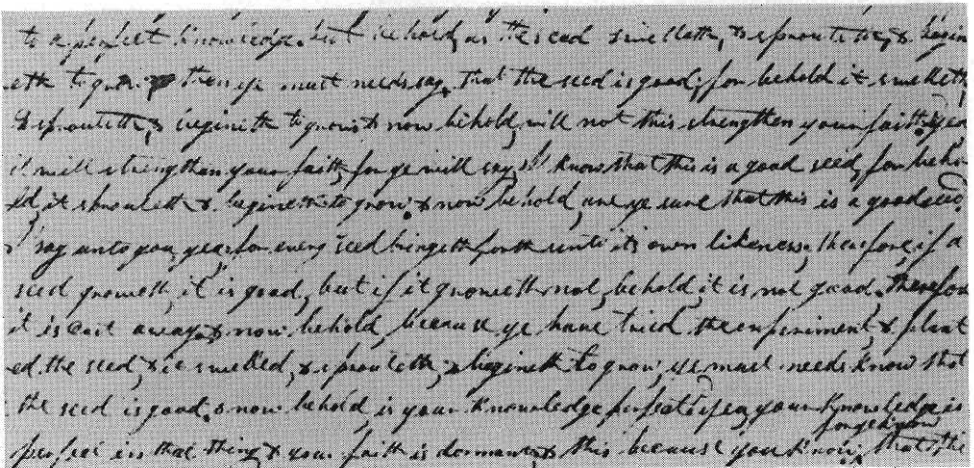 to a perfect knowledge. but behold, as the seed swelleth, & sprouteth, & begin
eth to grow then ye must needs say, that the seed is good; for behold it swelleth,
& sprouteth, & begineth to grow & now behold, will not this strengthen your faith? yea
it will strengthen your faith, for ye will say I know that this is a good seed, for beho
ld, it sprouteth & begineth to grow. & now behold, are ye sure that this is a good seed?
I say unto you, yea, for every seed bringeth forth unto its own likeness; therefore, if a
seed groweth, it is good, but if it groweth not, behold, it is not good. therefore
it is cast away, & now behold, because ye have tried the experiment, & plant
ed the seed, & it swelled, & sprouteth, & begineth to grow, ye must needs know that
the seed is good. & now behold is your knowledge perfect? yea, your knowledge is
perfect in that thing, & your faith is dormant, & this because you know, for ye know that the